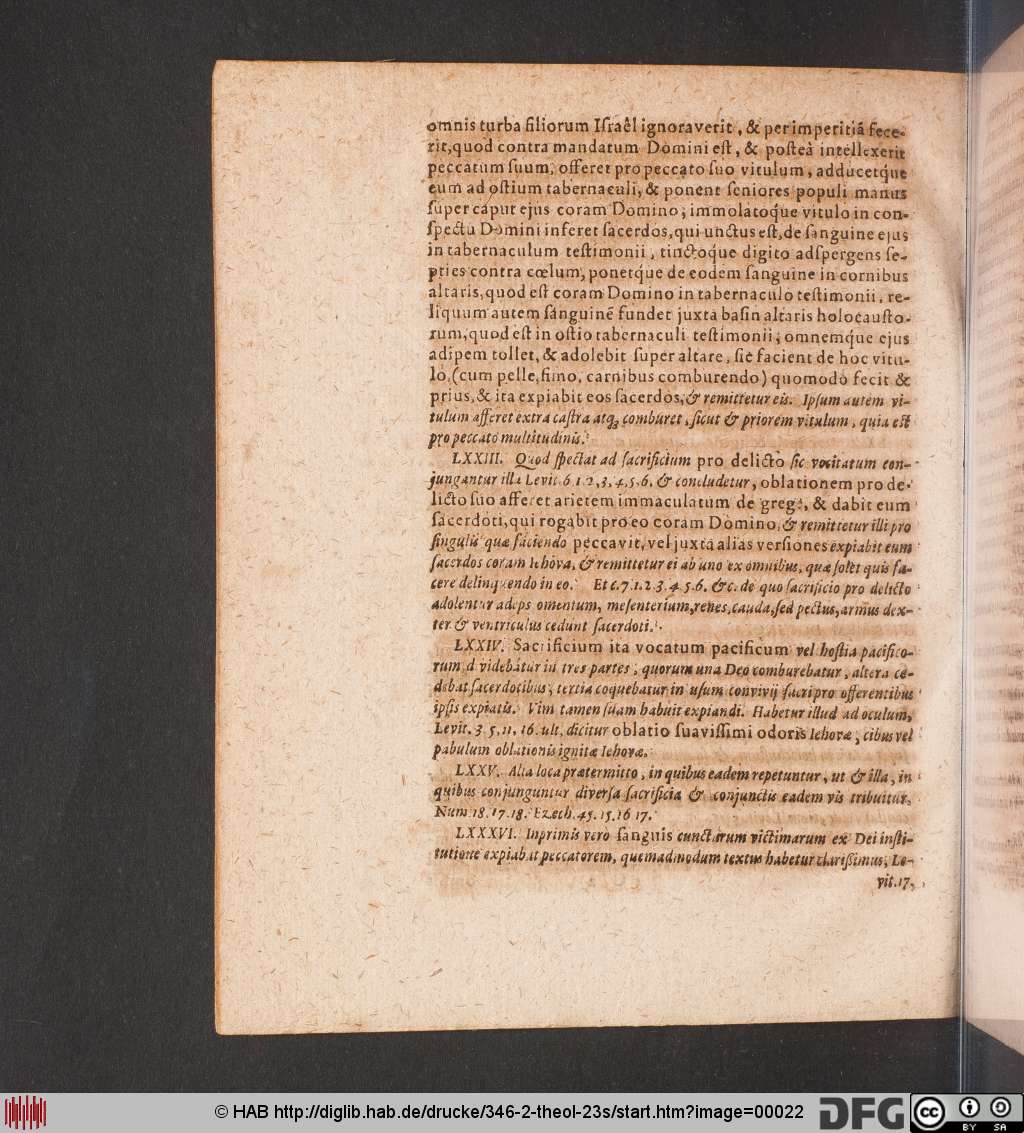 omnis turba filiorum Iſraêl ignoraverit, & per imperitiã fece-
rit, quod contra mandatum Domini eſt, & poſteà intellexerit
peccatum ſuum, offeret pro peccato ſuo vitulum, adducetq́ue
eum ad oſtium tabernaculi, & ponent ſeniores populi manus
ſuper caput ejus coram Domino; immolatoq́ue vitulo in con-
ſpectu Domini inferet ſacerdos, qui unctus eſt, de ſanguine ejus
in tabernaculum teſtimonii, tinctoq́ue digito adſpergens ſe-
pties contra cœlum, ponetq́ue de eodem ſanguine in cornibus
altaris, quod eſt coram Domino in tabernaculo teſtimonii, re-
liquum autem ſanguinẽ fundet juxta baſin altaris holocauſto-
rum, quod eſt in oſtio tabernaculi teſtimonii; omnemq́ue ejus
adipem tollet, & adolebit ſuper altare, ſic facient de hoc vitu-
lo, (cum pelle, fimo, carnibus comburendo) quomodò fecit &
prius, & ita expiabit eos ſacerdos, & remittetur eis. Ipſum autem vi-
tulum afferet extra caſtra atq; comburet, ſicut & priorem vitulum, quia eſt
pro peccato multitudinis.
LXXIII. Quod ſpectat ad ſacrificium pro delicto ſic vocitatum con-
jungantur illa Levit. 6. 1. 2, 3. 4. 5. 6. & concludetur, oblationem pro de-
licto ſuo afferet arietem immaculatum de grege, & dabit eum
ſacerdoti, qui rogabit pro eo coram Domino, & remittetur illi pro
ſingulis quæ faciendo peccavit, vel juxta alias verſiones expiabit eum
ſacerdos coram Iehova, & remittetur ei ab uno ex omnibus, quæ ſolet quis fa-
cere delinquendo in eo. Et c. 7. 1. 2. 3. 4. 5. 6. &c. de quo ſacrificio pro delicto
adolentur adeps omentum, meſenterium, renes, cauda, ſed pectus, armus dex-
ter & ventriculus cedunt ſacerdoti.
LXXIV. Sacrificium ita vocatum pacificum vel hoſtia pacifico-
rum dividebatur in tres partes, quorum una Deo comburebatur, altera ce-
debat ſacerdotibus, tertia coquebatur in uſum convivij ſacri pro offerentibus
ipſis expiatis. Vim tamen ſuam habuit expiandi. Habetur illud ad oculum,
Levit. 3. 5. 11. 16. ult. dicitur oblatio ſuaviſſimi odoris Iehovæ, cibus vel
pabulum oblationis ignitæ Iehovæ.
LXXV. Alia loca prætermitto, in quibus eadem repetuntur, ut & illa, in
quibus conjunguntur diverſa ſacrificia & conjunctis eadem vis tribuitur,
Num 18. 17. 18. Ezech. 45. 15. 16 17.
LXXXVI. Inprimis verò ſanguis cunctarum victimarum ex Dei inſti-
tutione expiabat peccatorem, quemadmodum textus habetur clariſſimus, Le-
vit. 17,
© HAB http://diglib.hab.de/drucke/346-2-theol-23s/start.htm?image=00022
DFG
cc
BY SA